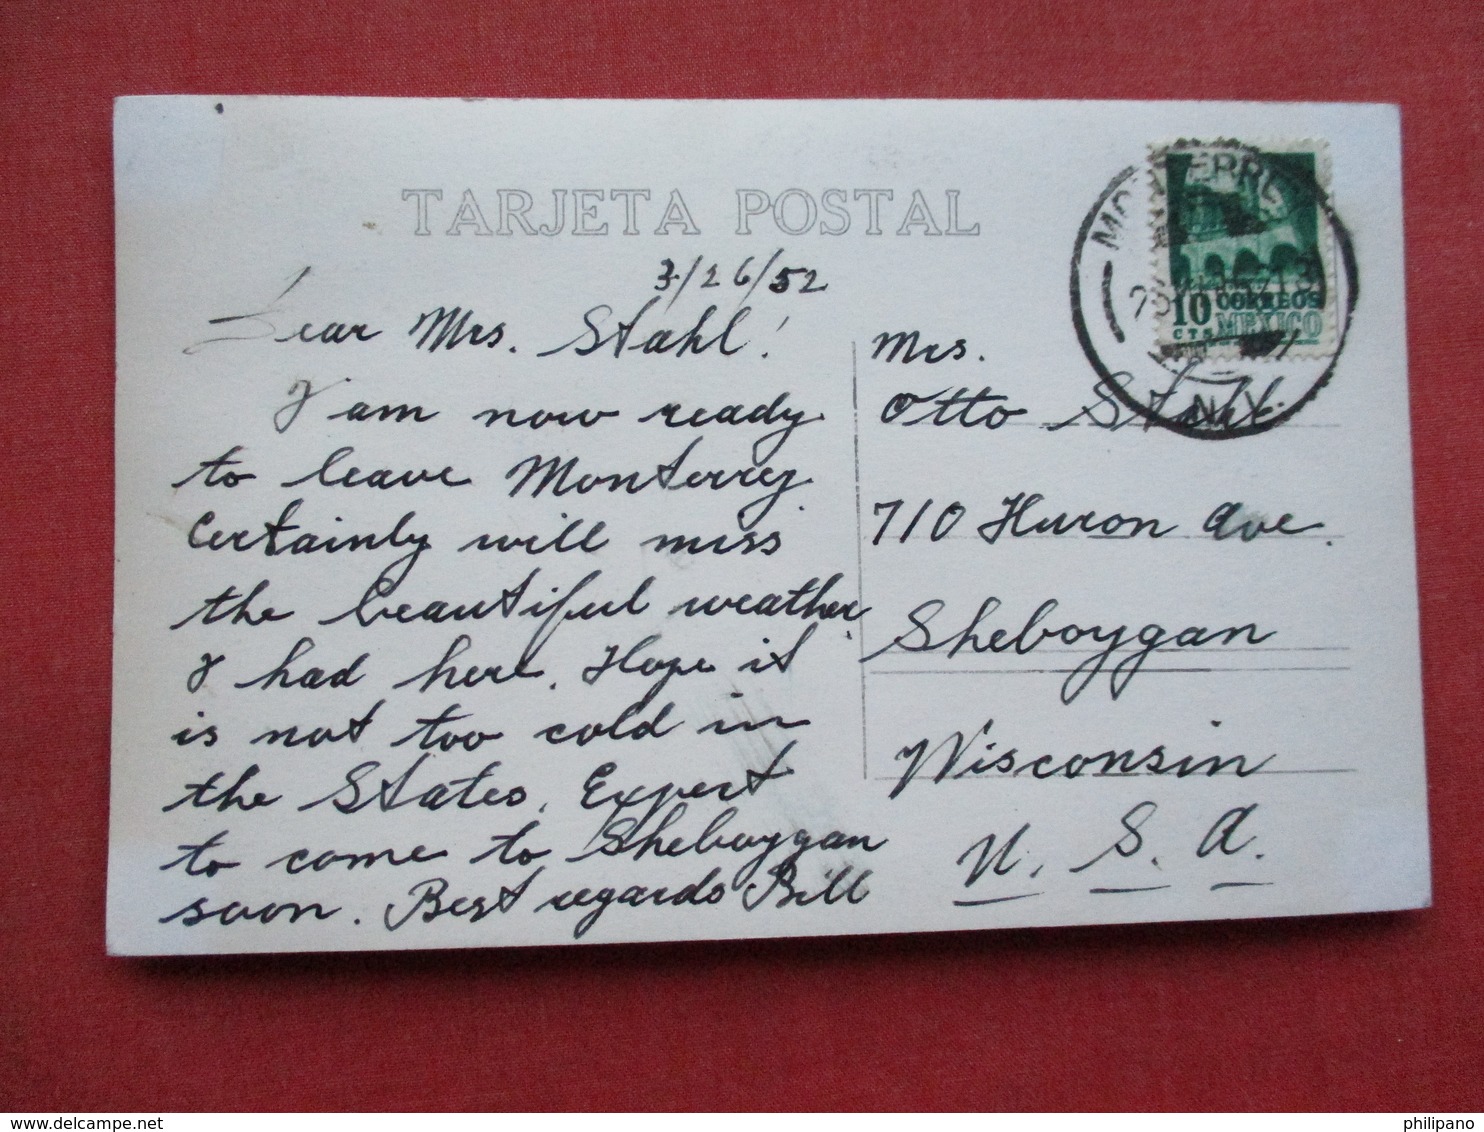 TARJETA POSTAL
3/26/52
Dear Mrs. Stahl!
I am now ready
to leave Monterrey.
Certainly will miss
the beautiful weather
I had here. Hope it
is not too cold in
the States. Expect
to come to Sheboygan
soon. Best regards Bill
Mrs.
Otto Stahl
710 Huron Ave.
Sheboygan
Wisconsin
U. S. A.
10 CORREOS
CTS MEXICO
philipano